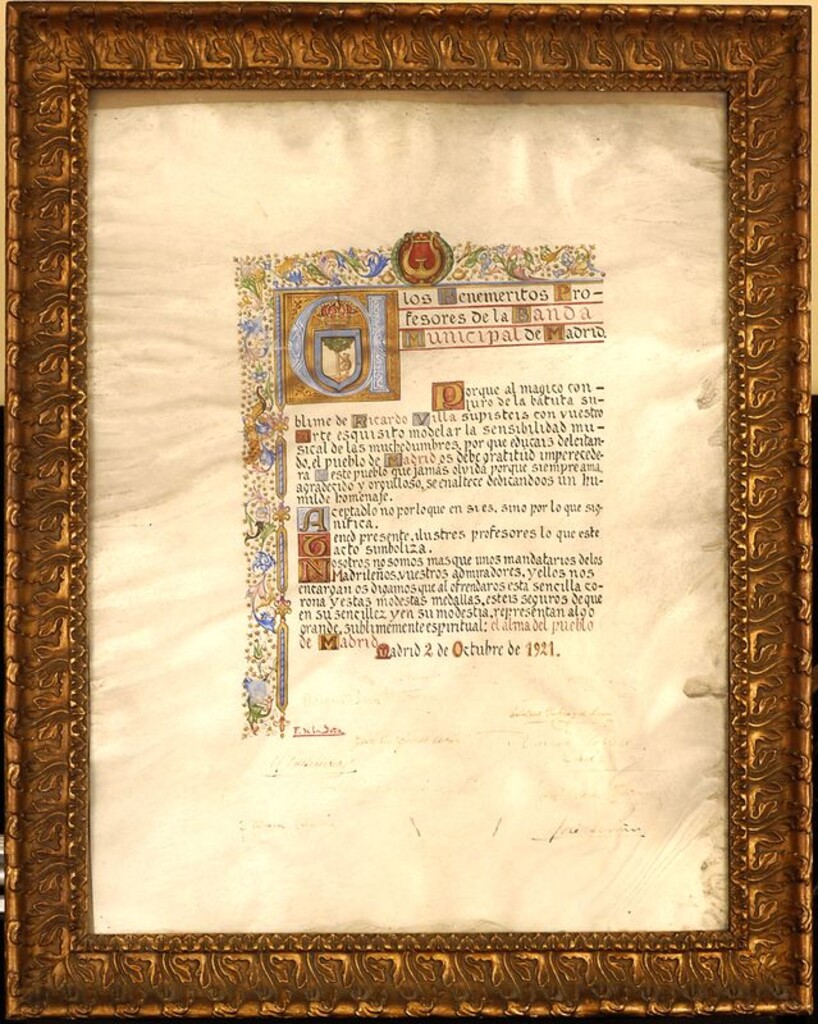 A los Benemeritos Pro-
fesores de la Banda
Municipal de Madrid.
Porque al magico con-
juro de la batuta su-
blime de Ricardo Villa supisteis con vuestro
Arte esquisito modelar la sensibilidad mu-
sical de las muchedumbres, por que educais deleitan-
do, el pueblo de Madrid os debe gratitud imperecede-
ra y este pueblo que jamás olvida porque siempre ama,
agradecido y orgulloso, se enaltece dedicandoos un hu-
milde homenaje.
Aceptadlo no por lo que en si es, sino por lo que sig-
nifica.
Tened presente, ilustres profesores lo que este
acto simboliza.
Nosotros no somos mas que unos mandatarios de los
Madrileños, vuestros admiradores, y ellos nos
encargan os digamos que al ofrendaros esta sencilla co-
rona y estas modestas medallas, esteis seguros de que
en su sencillez y en su modestia, representan algo
grande, sublimemente espiritual: el alma del pueblo
de Madrid
Madrid 2 de Octubre de 1921.